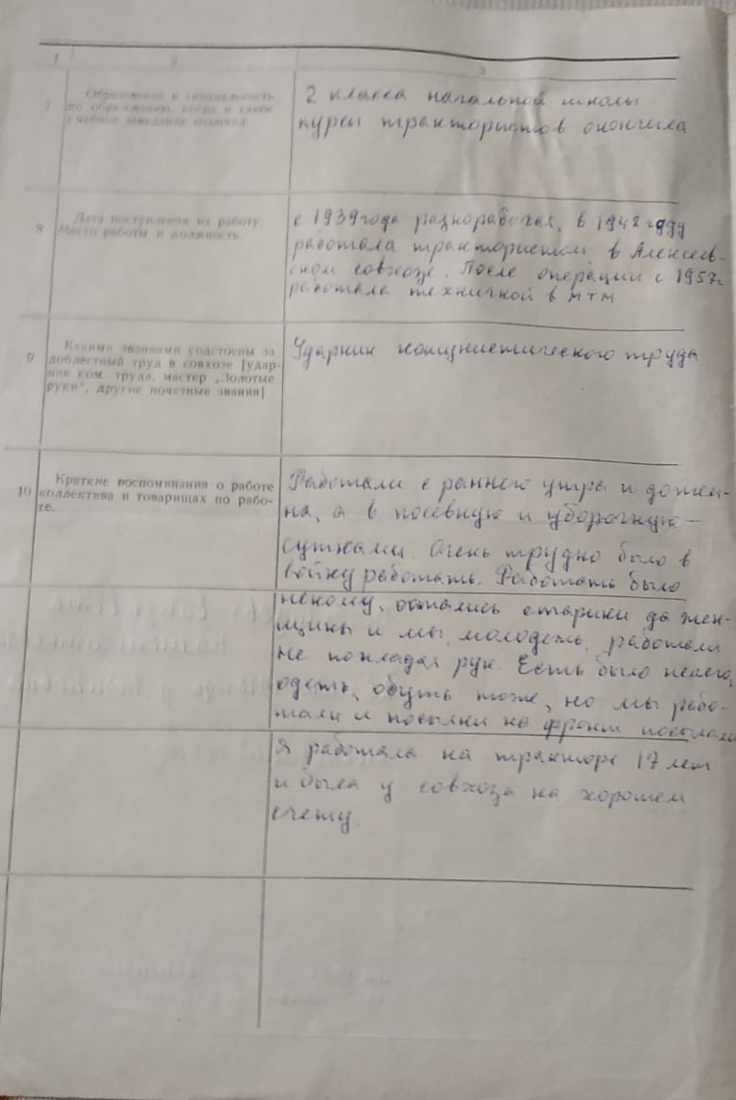 1 2 3
7 Образование и специальность
по образованию, когда и какое
учебное заведение окончил
2 класса начальной школы
курсы трактористов окончила
8 Дата поступления на работу.
Место работы и должность.
с 1939 года разнорабочая, в 1942 году
работала трактористом в Алексеев-
ском совхозе. После операции с 1957г
работала техничкой в МТМ
9 Какими званиями удостоены за
доблестный труд в совхозе [удар-
ник ком. труда, мастер „Золотые
руки“, другие почетные звания]
Ударник коммунистического труда
10 Краткие воспоминания о работе
коллектива и товарищах по рабо-
те.
Работали с раннего утра и до
на, а в посевную и уборочную –
сутками. Очень трудно было в
войну работать. Работать было
некому, остались старики да жен-
щины и мы, молодежь, работали
не покладая рук. Есть было нечего,
одеть, обуть тоже, но мы рабо-
тали и посылки на фронт посылали
Я работала на тракторе 17 лет
и была у совхоза на хорошем
счету.